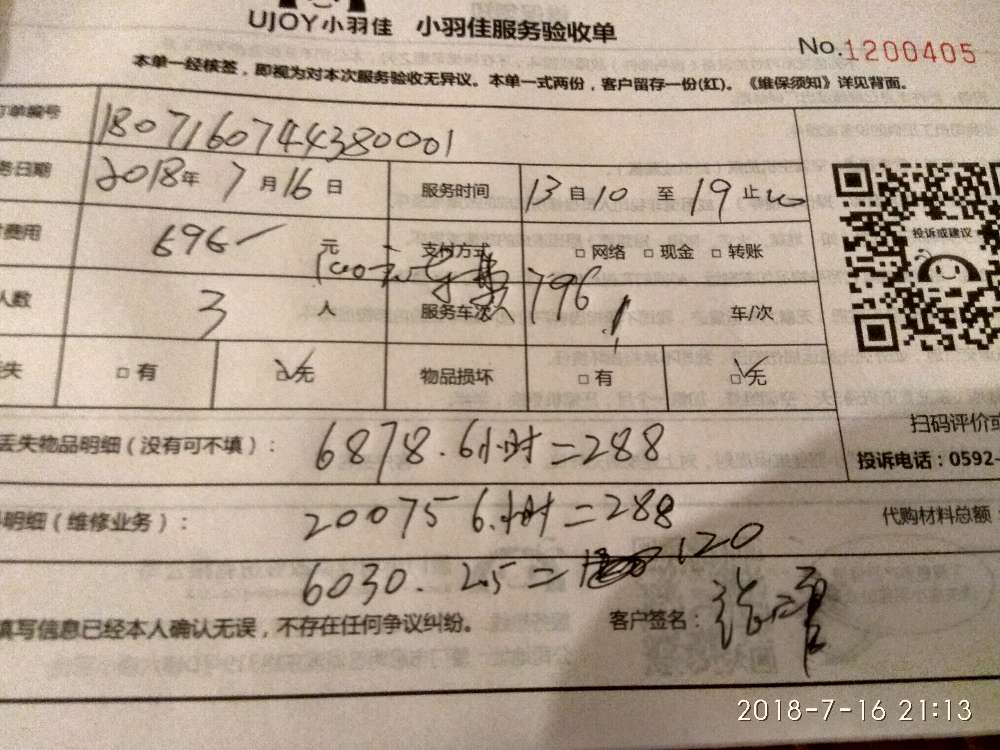 UJOY小羽佳 小羽佳服务验收单
No.1200405
本单一经核签，即视为对本次服务验收无异议。本单一式两份，客户留存一份(红)。《维保须知》详见背面。
订单编号 1807160744380001
务日期 2018年7月16日 服务时间 13自10至19止
费用 696 元 支付方式 □网络 □现金 □转账
100元
796
人数 3 人 服务车次 1 车/次
失 □有 ☑无 物品损坏 □有 ☑无
投诉或建议
扫码评价或
投诉电话：0592-
丢失物品明细（没有可不填）： 6878.6小时=288
明细（维修业务）： 20075 6小时=288 代购材料总额：
6030.2.5= 120
填写信息已经本人确认无误，不存在任何争议纠纷。 客户签名：
2018-7-16 21:13